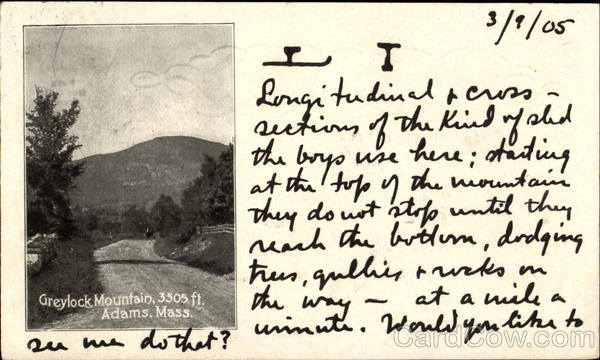 3/9/05
Longitudinal + cross-
sections of the kind of sled
the boys use here; starting
at the top of the mountain
they do not stop until they
reach the bottom, dodging
trees, gullies + rocks on
the way — at a mile a
minute. Would you like to
see me do that?
Greylock Mountain, 3505 ft.
Adams, Mass.
CardCow.com